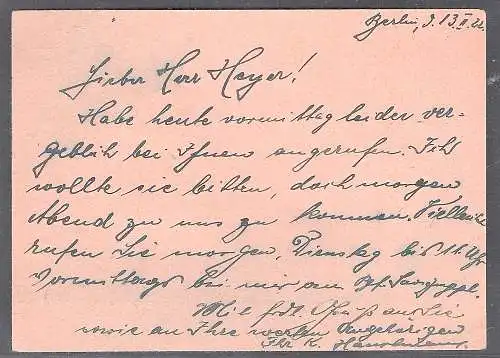 Berlin, d. 13. II. 22.
Lieber Herr Meyer!
Habe heute vormittag leider ver-
geblich bei Ihnen angerufen. Ich
wollte sie bitten, doch morgen
Abend zu uns zu kommen. Vielleicht
rufen Sie morgen, Dienstag bis 11 Uhr
Vormittags bei mir an
Mit frdl. Gruß an Sie
sowie an Ihre werten Angehörigen
Ihr K.